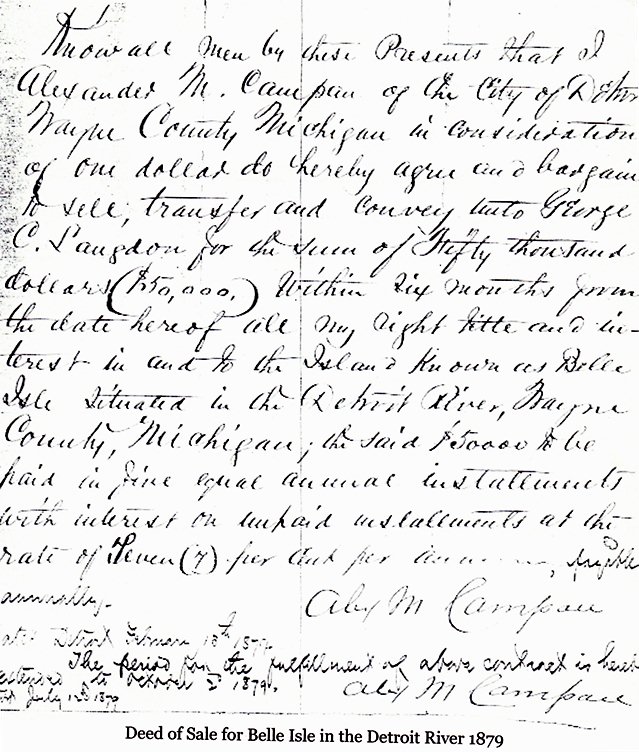 Know all men by these Presents that I
Alexander M. Campau of the City of Detr
Wayne County Michigan in consideration
of one dollar do hereby agree and bargain
to sell, transfer and convey unto George
C. Langdon for the sum of Fifty thousand
dollars ($50,000.) Within six months from
the date hereof all my right title and in-
terest in and to the Island Known as Belle
Isle situated in the Detroit River, Wayne
County, Michigan, the said $50000 to be
paid in five equal annual installments
with interest on unpaid installments at the
rate of Seven (7) per cent per annum, payable
annually.
Alex M Campau
Detroit February 18th 1879
The period for the fulfillment of above contract is hereby
extended to October 1879.
July 12 1879
Alex M Campau
Deed of Sale for Belle Isle in the Detroit River 1879